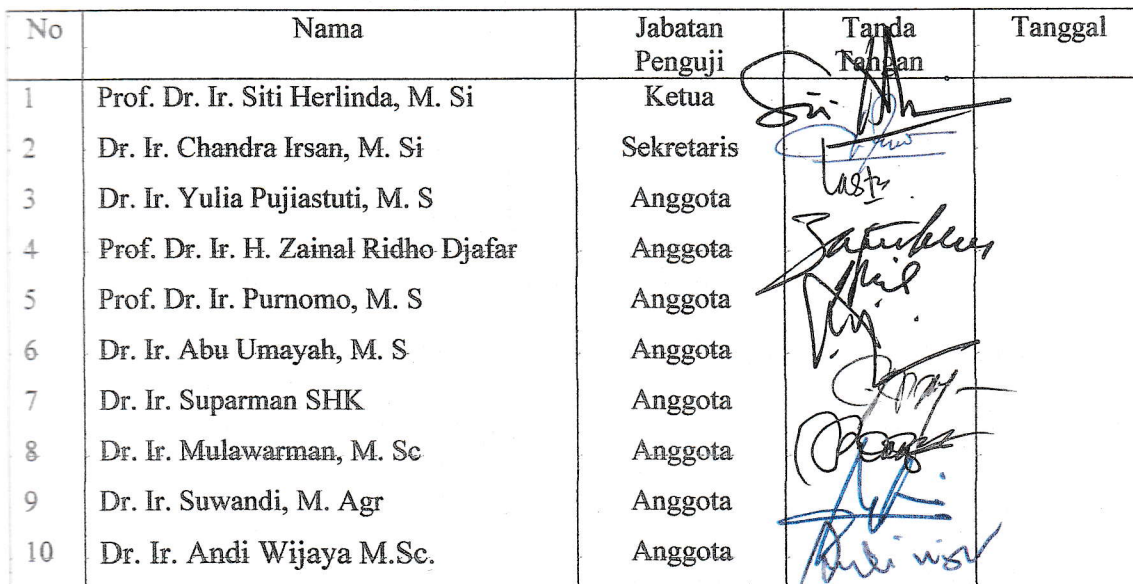 No Nama Jabatan Penguji Tanda Tangan Tanggal
1 Prof. Dr. Ir. Siti Herlinda, M. Si Ketua
2 Dr. Ir. Chandra Irsan, M. Si Sekretaris
3 Dr. Ir. Yulia Pujiastuti, M. S Anggota
4 Prof. Dr. Ir. H. Zainal Ridho Djafar Anggota
5 Prof. Dr. Ir. Purnomo, M. S Anggota
6 Dr. Ir. Abu Umayah, M. S Anggota
7 Dr. Ir. Suparman SHK Anggota
8 Dr. Ir. Mulawarman, M. Sc Anggota
9 Dr. Ir. Suwandi, M. Agr Anggota
10 Dr. Ir. Andi Wijaya M.Sc. Anggota